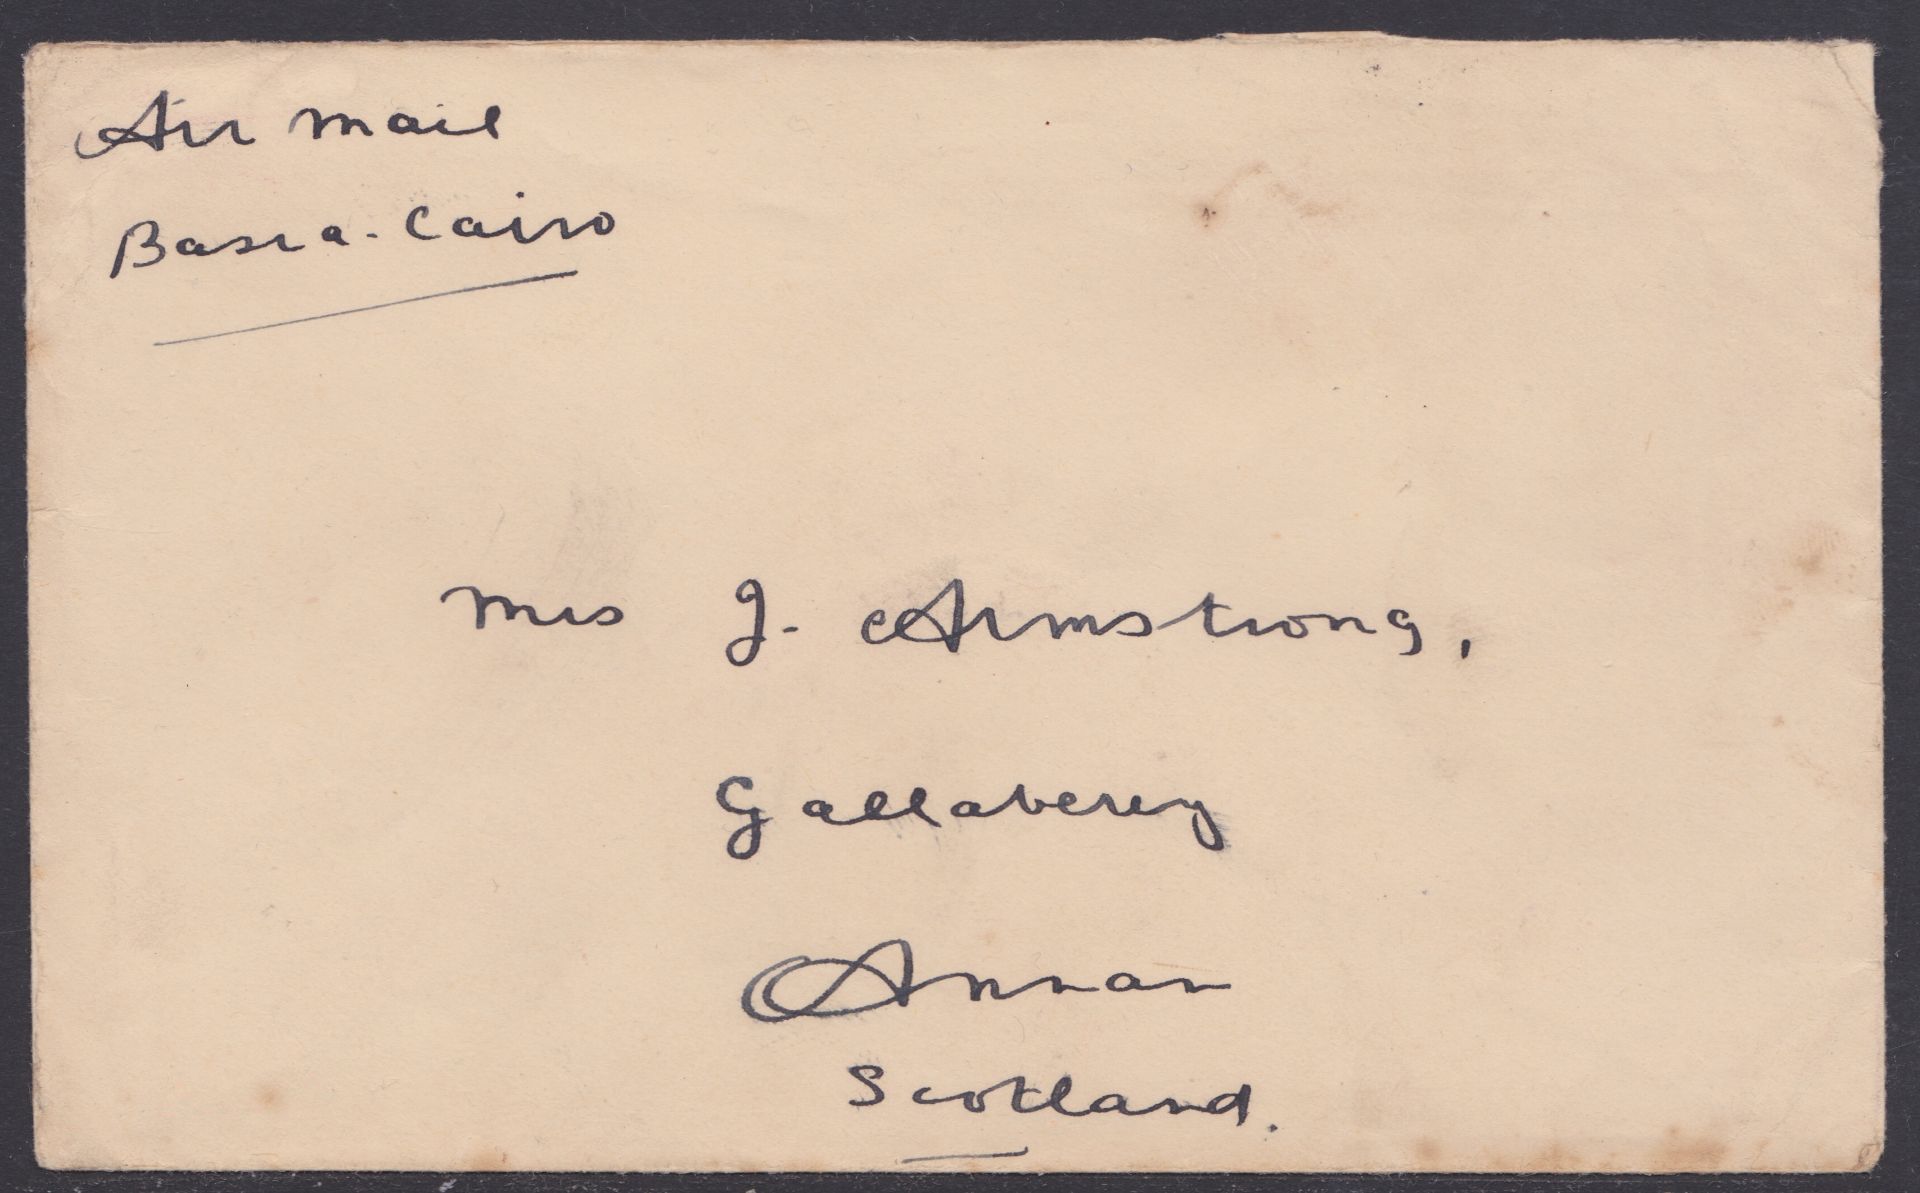 Air Mail
Basra - Cairo
Mrs J. Armstrong,
Gallaberry
Annan
Scotland.